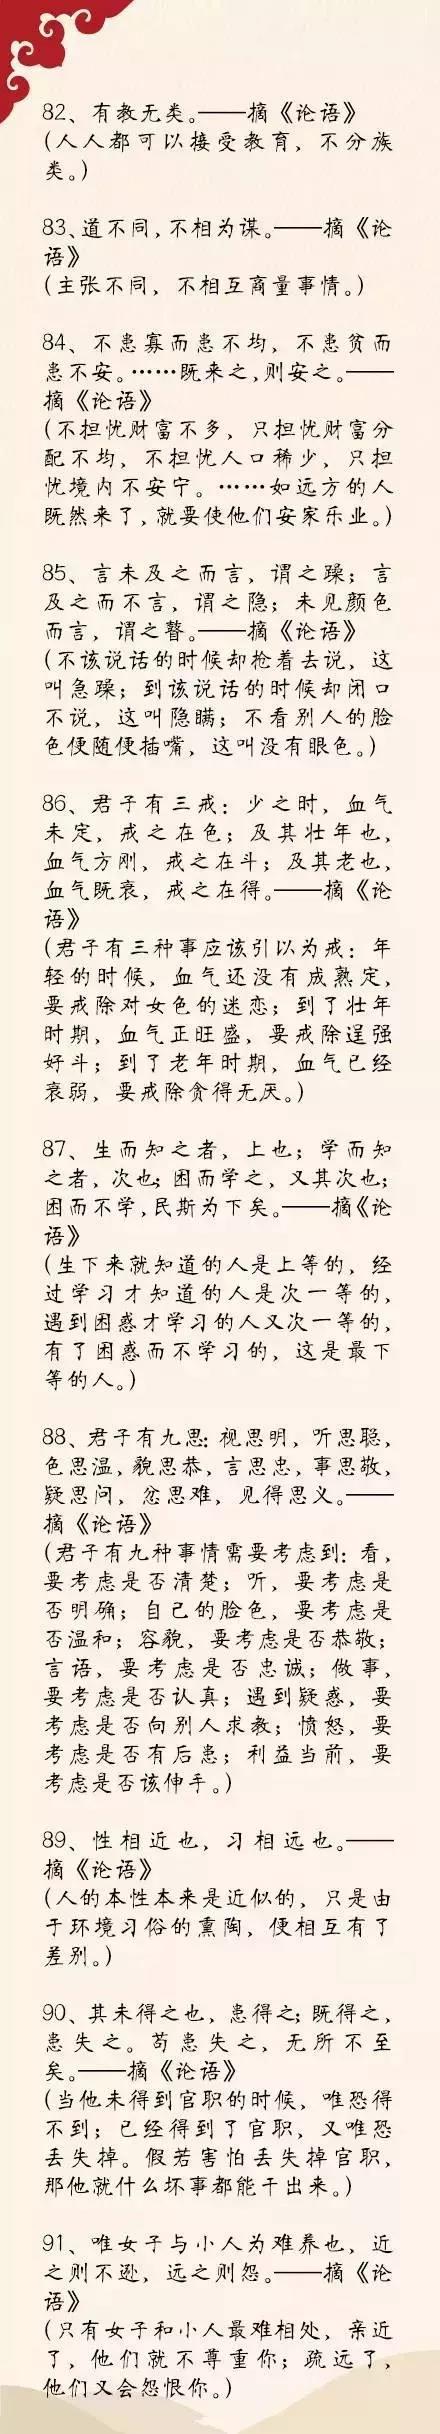 82、有教无类。——摘《论语》
(人人都可以接受教育，不分族
类。)
83、道不同，不相为谋。——摘《论
语》
(主张不同，不相互商量事情。)
84、不患寡而患不均，不患贫而
患不安。……既来之，则安之。——
摘《论语》
(不担忧财富不多，只担忧财富分
配不均，不担忧人口稀少，只担
忧境内不安宁。……如远方的人
既然来了，就要使他们安家乐业。)
85、言未及之而言，谓之躁；言
及之而不言，谓之隐；未见颜色
而言，谓之瞽。——摘《论语》
(不该说话的时候却抢着去说，这
叫急躁；到该说话的时候却闭口
不说，这叫隐瞒；不看别人的脸
色便随便插嘴，这叫没有眼色。)
86、君子有三戒：少之时，血气
未定，戒之在色；及其壮年也，
血气方刚，戒之在斗；及其老也，
血气既衰，戒之在得。——摘《论
语》
(君子有三种事应该引以为戒：年
轻的时候，血气还没有成熟定，
要戒除对女色的迷恋；到了壮年
时期，血气正旺盛，要戒除逞强
好斗；到了老年时期，血气已经
衰弱，要戒除贪得无厌。)
87、生而知之者，上也；学而知
之者，次也；困而学之，又其次也；
困而不学，民斯为下矣。——摘《论
语》
(生下来就知道的人是上等的，经
过学习才知道的人是次一等的，
遇到困惑才学习的人又次一等的，
有了困惑而不学习的，这是最下
等的人。)
88、君子有九思：视思明，听思聪，
色思温，貌思恭，言思忠，事思敬，
疑思问，忿思难，见得思义。——
摘《论语》
(君子有九种事情需要考虑到：看，
要考虑是否清楚；听，要考虑是
否明确；自己的脸色，要考虑是
否温和；容貌，要考虑是否恭敬；
言语，要考虑是否忠诚；做事，
要考虑是否认真；遇到疑惑，要
考虑是否向别人求教；愤怒，要
考虑是否有后患；利益当前，要
考虑是否该伸手。)
89、性相近也，习相远也。——
摘《论语》
(人的本性本来是近似的，只是由
于环境习俗的熏陶，便相互有了
差别。)
90、其未得之也，患得之；既得之，
患失之。苟患失之，无所不至
矣。——摘《论语》
(当他未得到官职的时候，唯恐得
不到；已经得到了官职，又唯恐
丢失掉。假若害怕丢失掉官职，
那他就什么坏事都能干出来。)
91、唯女子与小人为难养也，近
之则不逊，远之则怨。——摘《论
语》
(只有女子和小人最难相处，亲近
了，他们就不尊重你；疏远了，
他们又会怨恨你。)